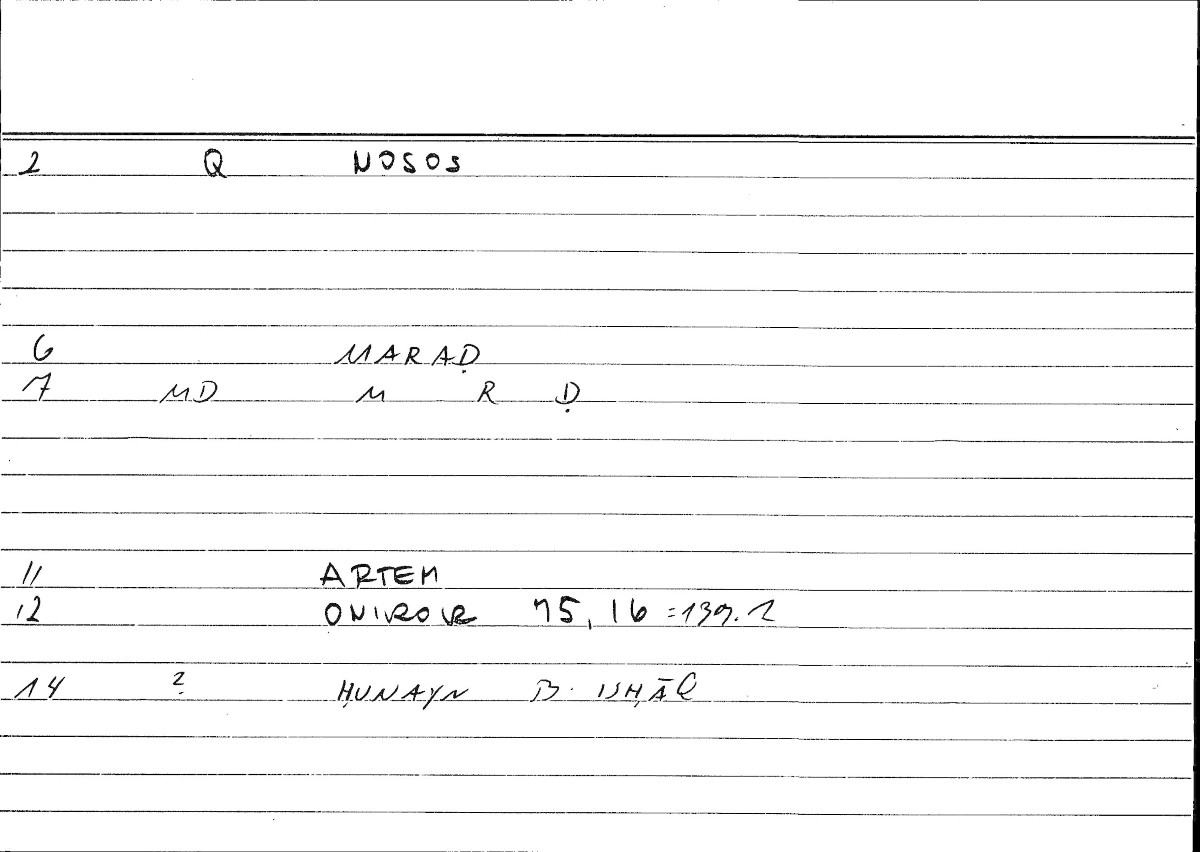 2 Q NOSOS
6 MARAḌ
7 MD M R Ḍ
11 ARTEM
12 ONIROKR 75, 16 = 139.2
14 ? ḤUNAYN B. ISḤĀQ